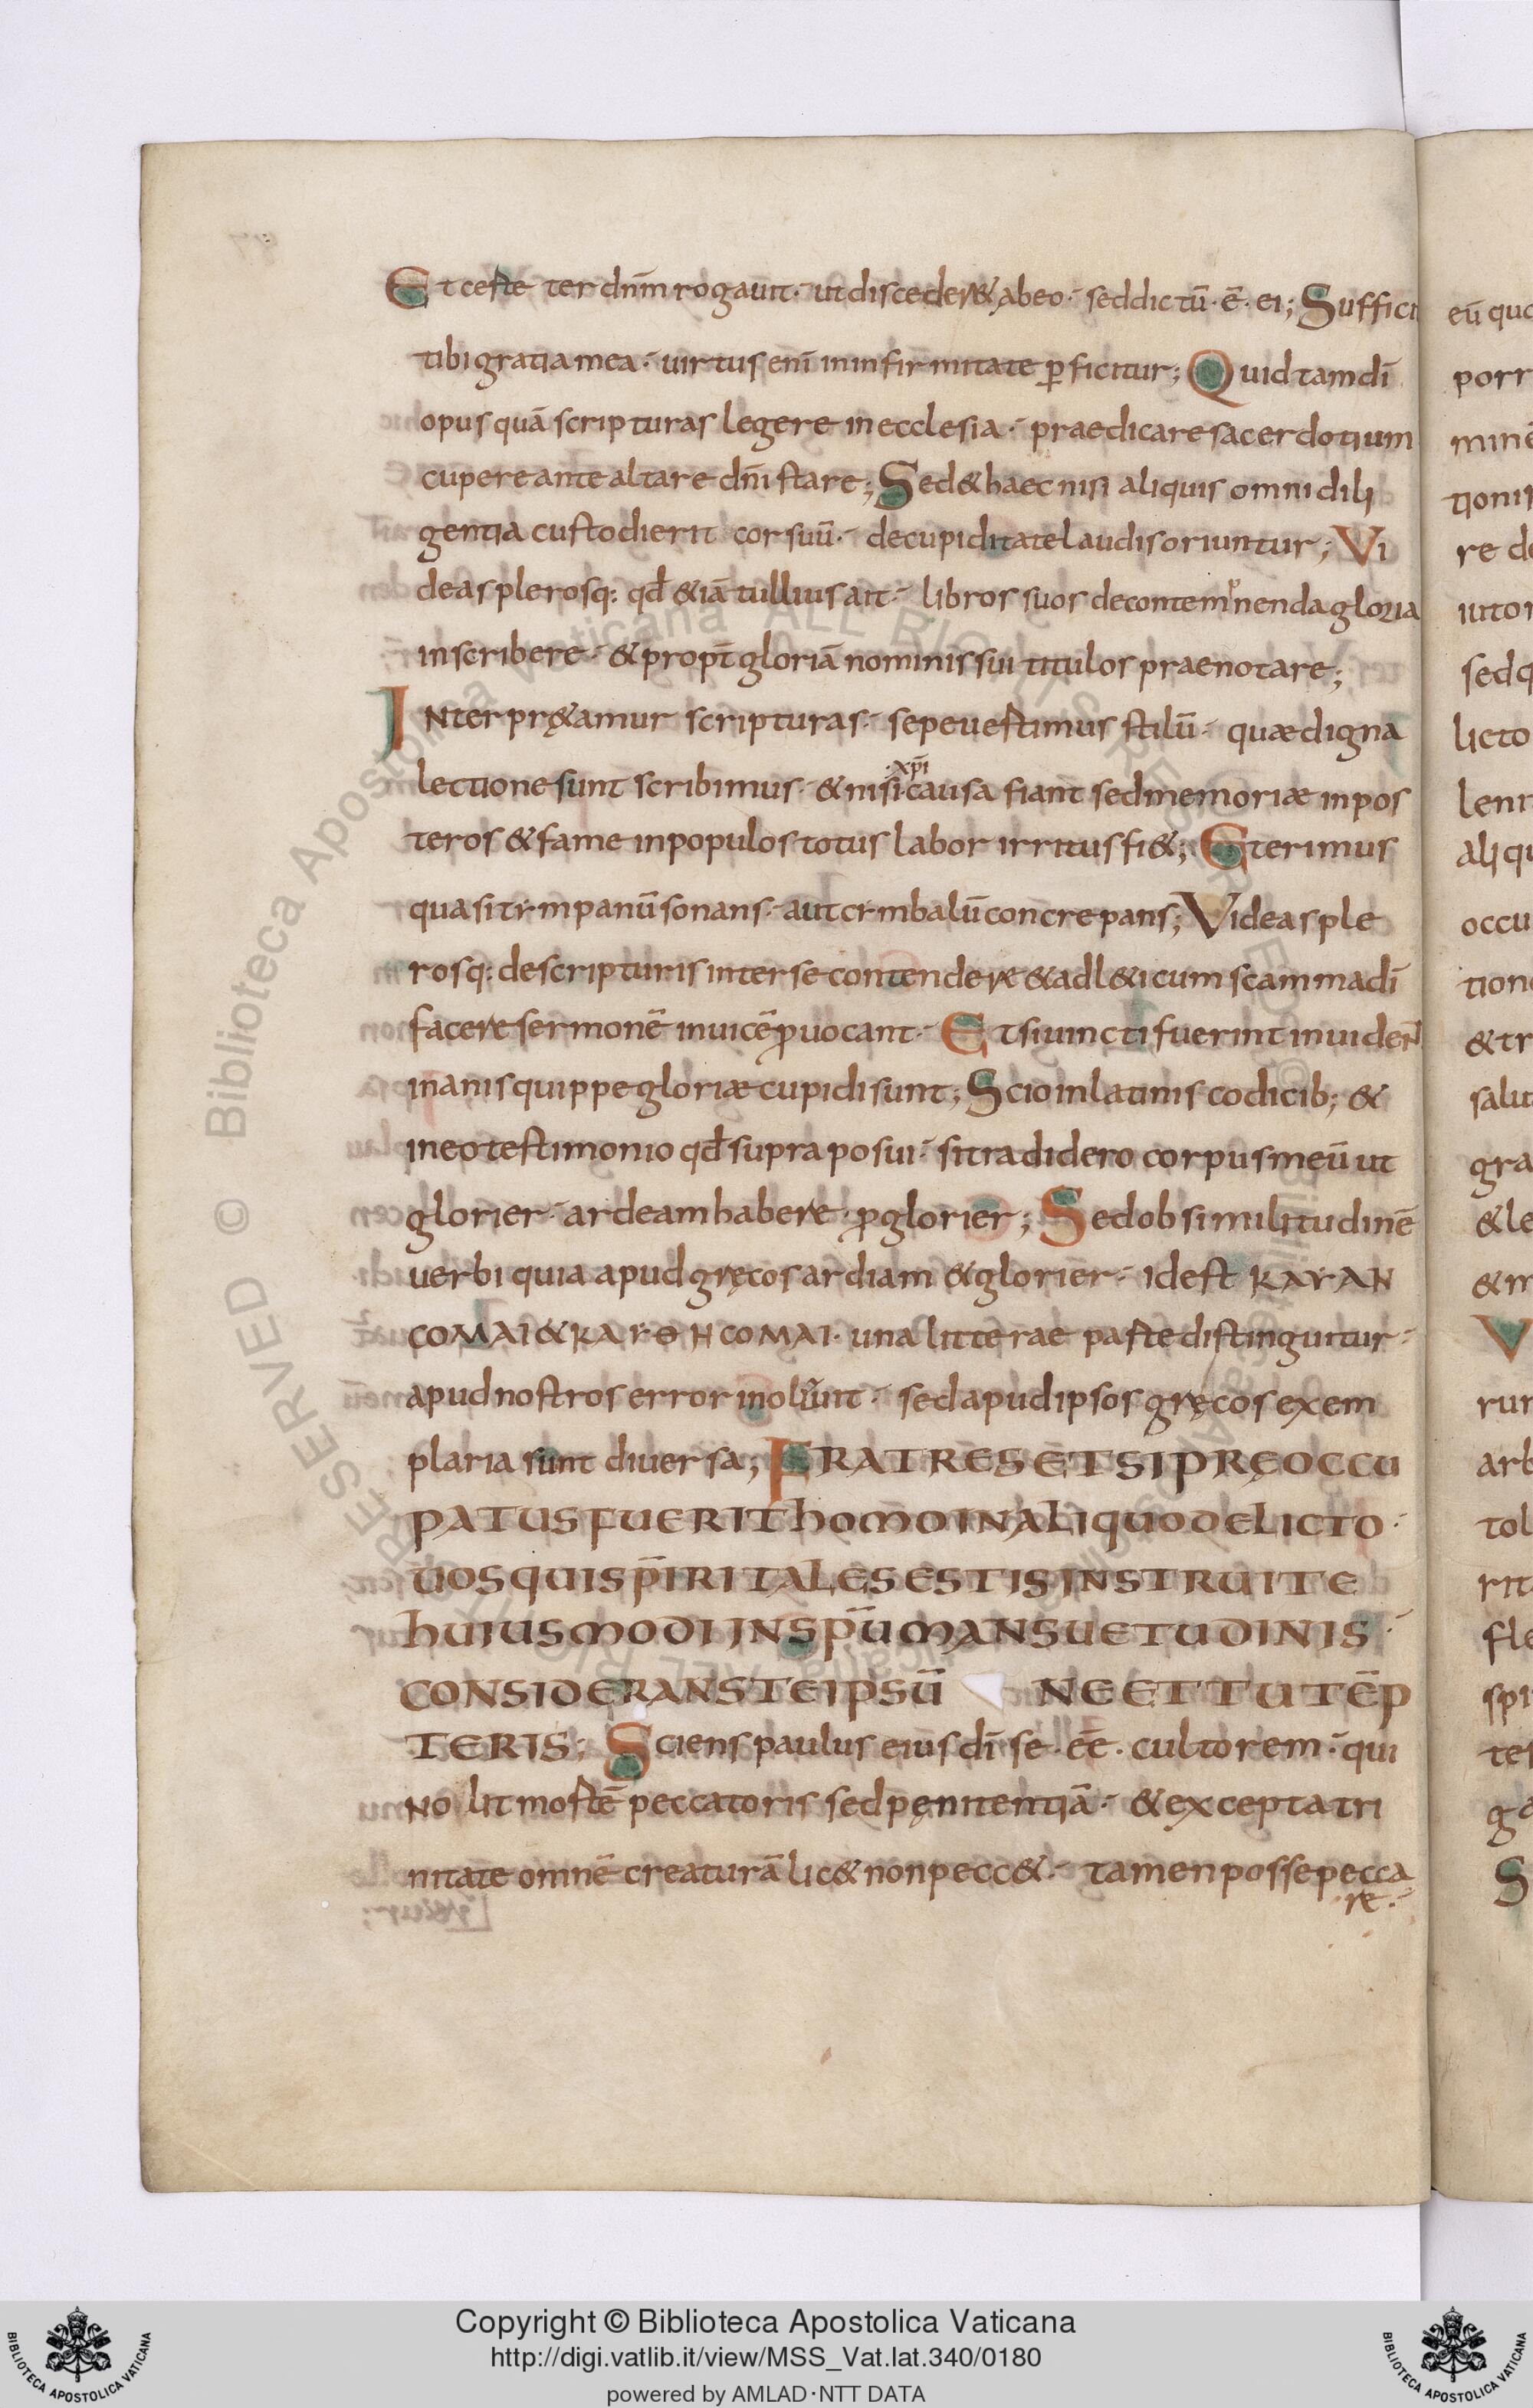 Et certe ter dnm̄ rogauit. ut discederet abeo. sed dictū. ē. ei; Suffici
tibi gratia mea. uirtus eni̅ in infirmitate ꝑficitur; Quid tam di̅
opus quā scripturas legere in ecclesia. praedicare sacerdotium
cupere ante altare dn̅i stare; Sed & haec nisi aliquis omni dili
gentia custodierit cor suū. de cupiditate laudis oriuntur; Vi
deas plerosq: qđ &iā tullius ait. libros suos de contemnenda gloria
inscribere. & propt̄ gloriā nominis sui titulos praenotare;
INterpręamur scripturas. sepe uestimus stilū. quæ digna
lectione sunt scribimus. & nisi xp̄i causa fiant sed memoriæ in pos
teros & fame in populos totus labor irritus fi&; Et erimus
quasi tympanū sonans. aut cymbalū concrepans; Videas ple
rosq: de scripturis inter se contendere & adl&icum scamma di̅
facere sermonē inuicē ꝓuocant. Et si uincti fuerint inuideN̄
inanis quippe gloriæ cupidi sunt; Scio in latinis codicib; &
in eo testimonio qđ supra posui. si tradidero corpus meū ut
glorier. ardeam habere. ꝓ glorier; Sed ob similitudinē
uerbi quia apud gręcos ardiam & glorier. id est KAYAN
COMAI & KAYΘHCOMAI. una litterae parte distinguitur.
apud nostros error inoluit. sed apud ipsos gręcos exem
plaria sunt diuersa; FRATRES ET SI PRĘOCCU
PATUS FUERIT HOMO IN ALIQUO DELICTO.
UOS QUI SP̄IRITALES ESTIS INSTRUITE
HUIUSMODI IN SP̄U MANSUETUDINIS.
CONSIDERANS TEIPSŪ NE ET TU TĒP
TERIS; Sciens paulus eius di̅ se. eē. cultorem. qui
nolit mortē peccatoris sed pęnitentiā. & excepta tri
nitate omnē creaturā lic& non pecc&. tamen posse pecca
re.
eū quo
porr
minē
tionis
re de
iutor
sed q
licto
leni
aliqu
occu
tione
& tr
salut
gra
& le
& m
V
rur
arb
tol
rit
fle
spi
ter
ga
S
Copyright © Biblioteca Apostolica Vaticana
http://digi.vatlib.it/view/MSS_Vat.lat.340/0180
powered by AMLAD·NTT DATA
BIBLIOTECA APOSTOLICA VATICANA
BIBLIOTECA APOSTOLICA VATICANA